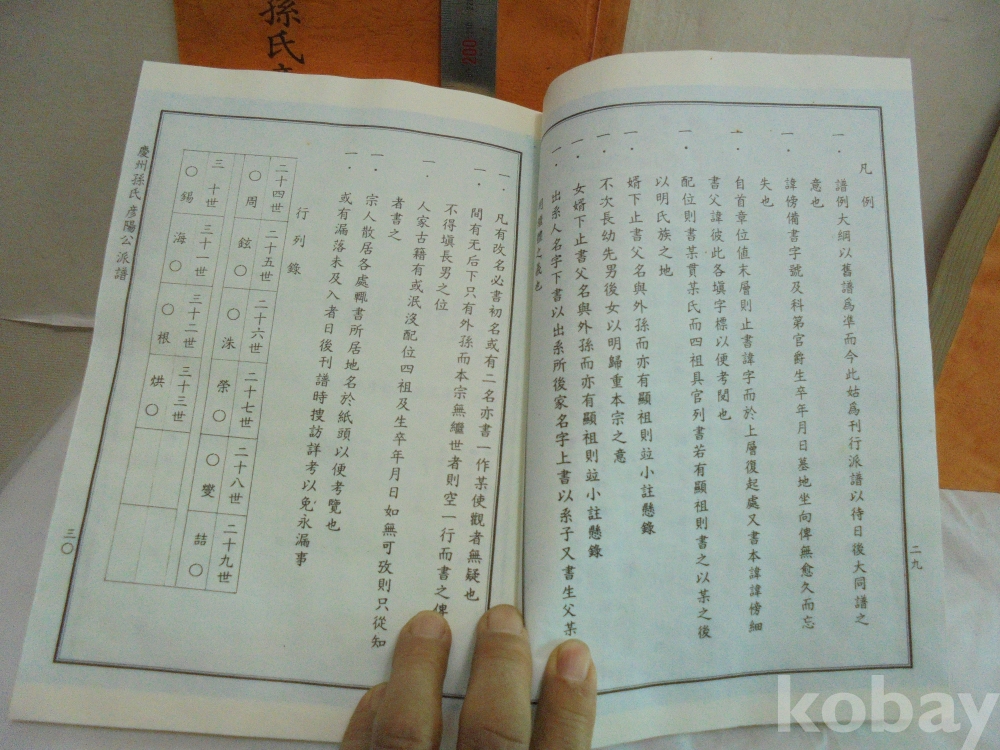 孫氏
200
凡例
一. 譜例大綱以舊譜爲準而今此姑爲刊行派譜以待日後大同譜之
意也
一. 諱傍備書字號及科第官爵生卒年月日墓地坐向俾無愈久而忘
失也
一. 自首章位値末層則止書諱字而於上層復起處又書本諱諱傍細
書父諱彼此各填字標以便考閱也
一. 配位則書某貫某氏而四祖具官列書若有顯祖則書之以某之後
以明氏族之地
一. 婿下止書父名與外孫而亦有顯祖則竝小註懸錄
一. 不次長幼先男後女以明歸重本宗之意
一. 女婿下止書父名與外孫而亦有顯祖則竝小註懸錄
一. 出系人名字下書以出系所後家名字上書以系子又書生父某
二九
一. 凡有改名必書初名或有二名亦書一作某使觀者無疑也
一. 間有无后下只有外孫而本宗無繼世者則空一行而書之俾
不得填長男之位
一. 人家古籍有或泯沒配位四祖及生卒年月日如無可攷則只從知
者書之
一. 宗人散居各處輒書所居地名於紙頭以便考覽也
一. 或有漏落未及入者日後刊譜時搜訪詳考以免永漏事
行列錄
二十四世 二十五世 二十六世 二十七世 二十八世 二十九世
○周 鉉○ ○洙 榮○ ○燮 喆○
三十世 三十一世 三十二世 三十三世
○錫 海○ ○根 烘○
慶州孫氏彦陽公派譜
三〇
kobay